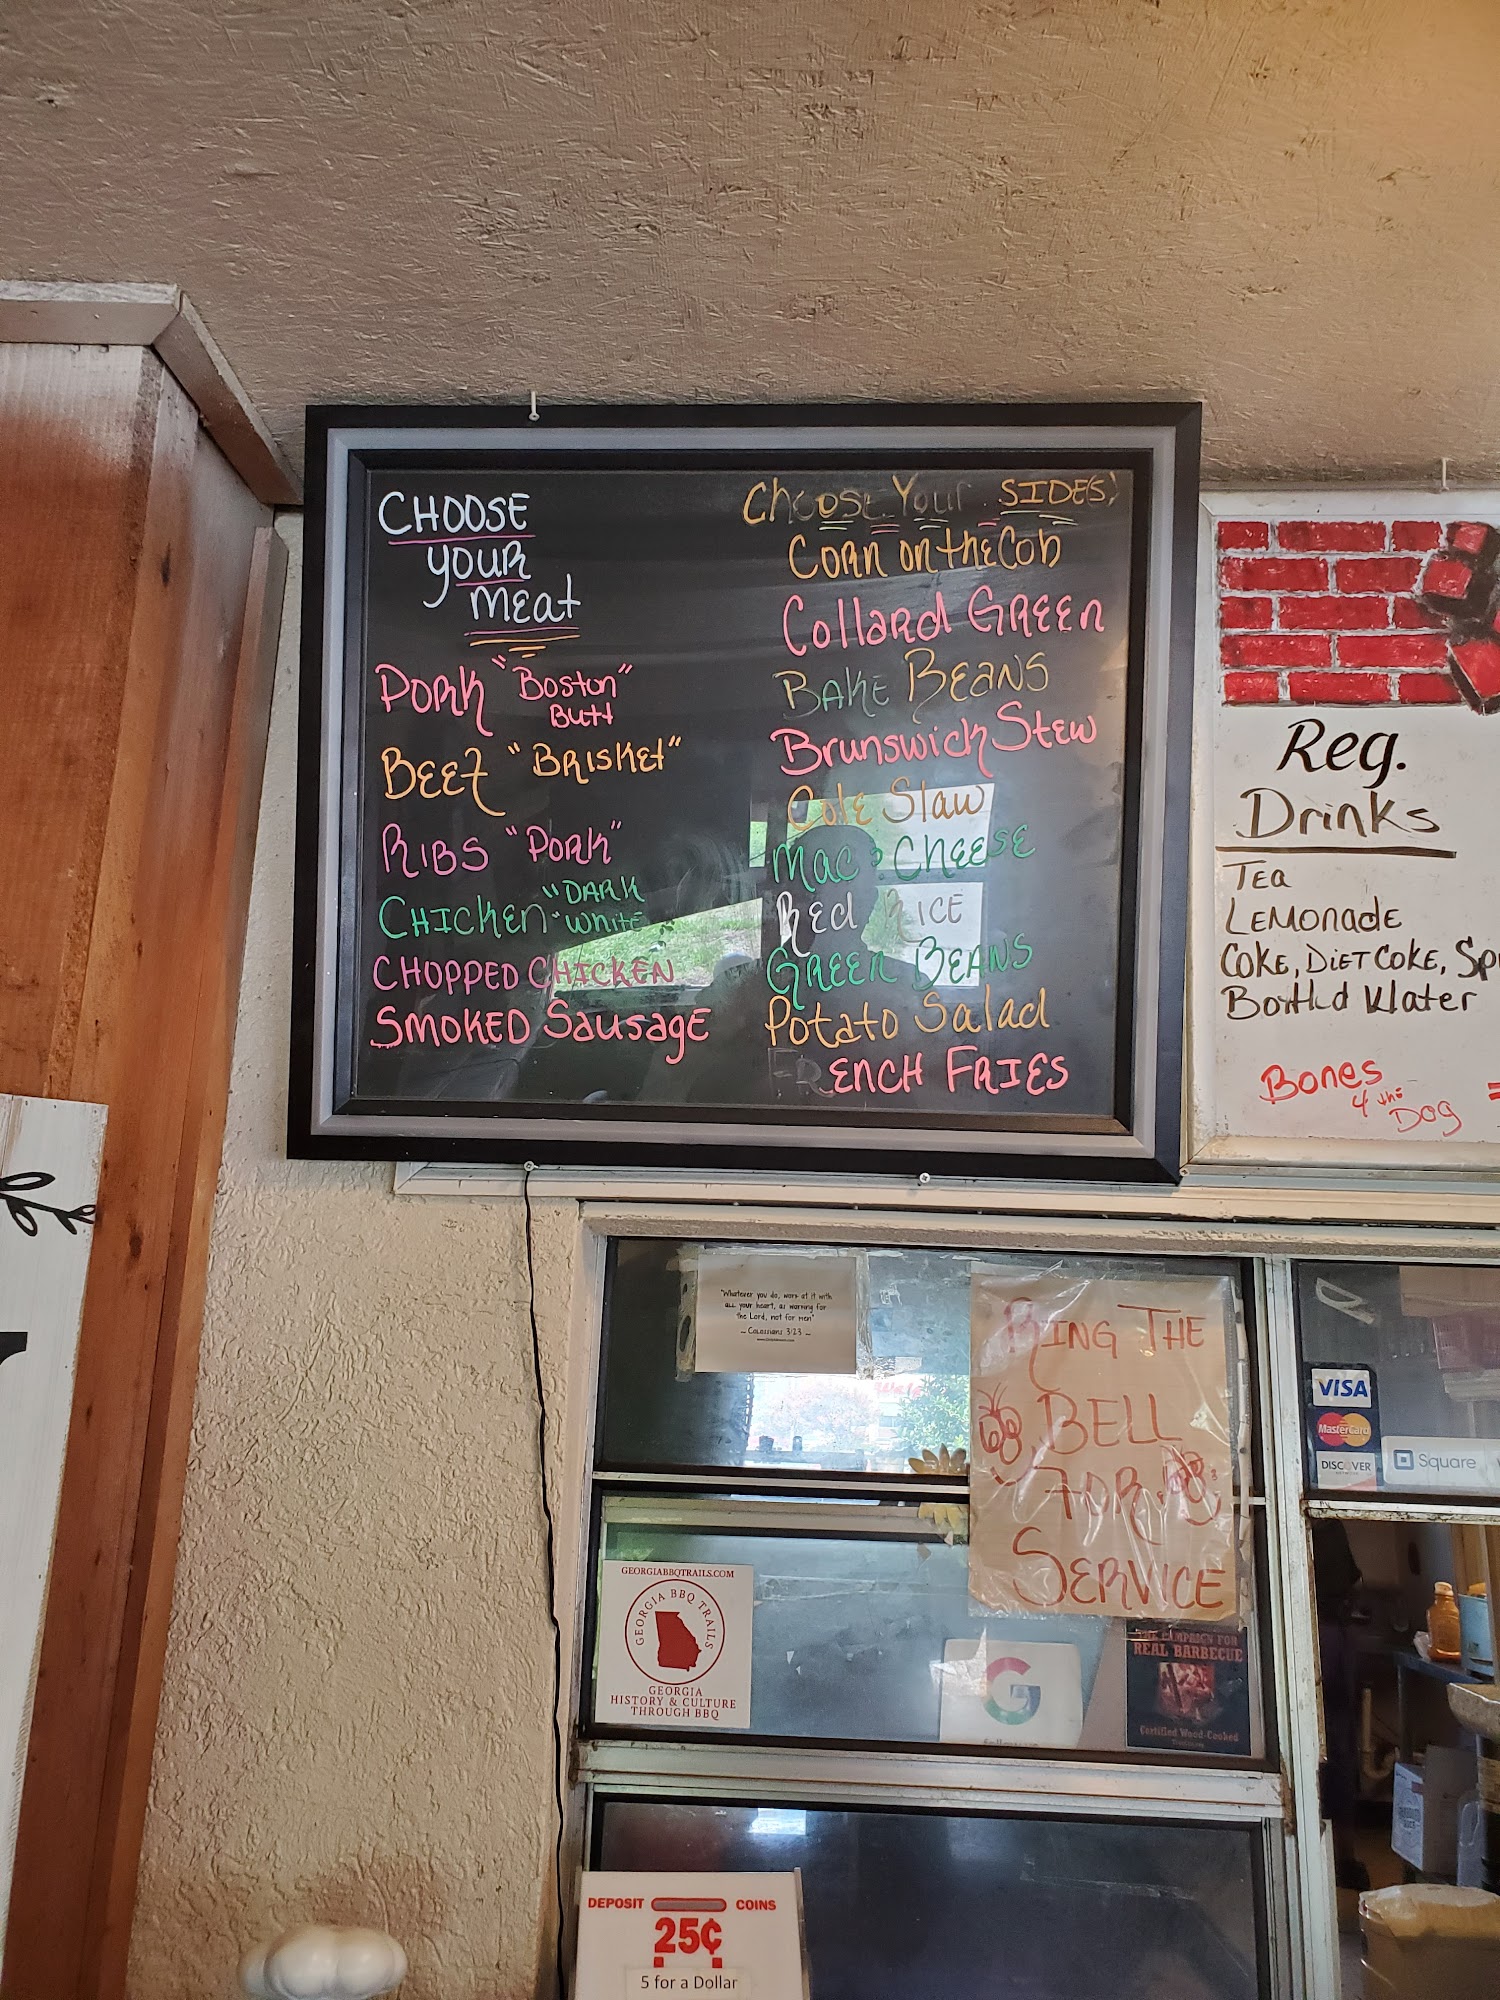 CHOOSE
YOUR
MEAT
PORK "BOSTON
BUTT"
BEEF "BRISKET"
RIBS "PORK"
CHICKEN "DARK
"WHITE
CHOPPED CHICKEN
SMOKED SAUSAGE
Choose Your SIDES!
CORN ON THE COB
Collard GREEN
BAKE BEANS
Brunswick Stew
Cole Slaw
Mac & CHEESE
Red RICE
GREEN BEANS
Potato Salad
FRENCH FRIES
Reg.
Drinks
TEA
LEMONADE
COKE, DIET COKE, Sp
Bottled Water
BONES
4 the
DOG
"Whatever you do, work at it with
all your heart, as working for
the Lord, not for men"
- Colossians 3:23 -
RING THE
BELL
FOR
SERVICE
VISA
MasterCard
DISCOVER
Square
GEORGIABBQTRAILS.COM
GEORGIA BBQ TRAILS
GEORGIA
HISTORY & CULTURE
THROUGH BBQ
G
THE CAMPAIGN FOR
REAL BARBECUE
Certified Wood-Cooked
DEPOSIT COINS
25¢
5 for a Dollar